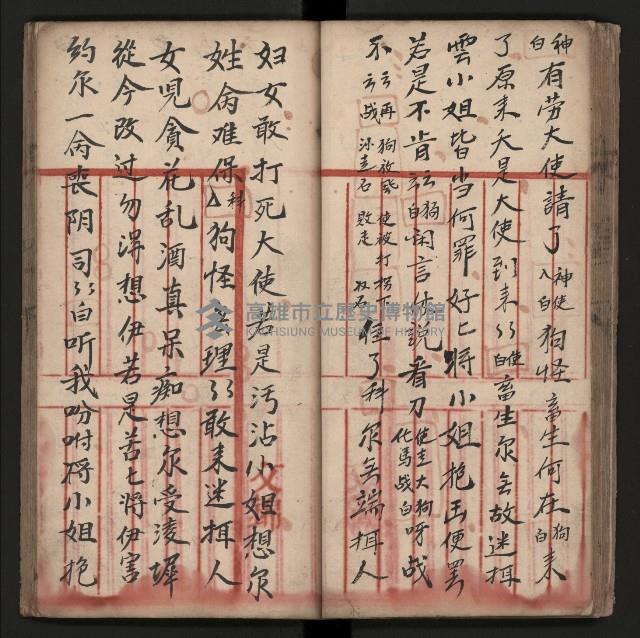 神白有劳大使請了神使入白狗怪畜生何在狗白来
了原来天是大使到来〻使白畜生尔无故迷拐
雲小姐皆当何罪好〻将小姐抱出便罢
若是不肯云狗白闲言休説看刀使走大狗化馬战白呀战
不云再云战狗放砂走石使被打拐下败走收石住了科尔无端拐人
妇女敢打死大使若是污沾小姐想尔
姓命难保科△狗怪无理〻敢来迷拐人
女児貪花乱酒真呆痴想尔受凌墀
從今改过勿得想伊若是苦〻将伊害
约尔一命丧阴司〻白听我吩咐将小姐抱
高雄市立歷史博物館
KAOHSIUNG MUSEUM OF HISTORY